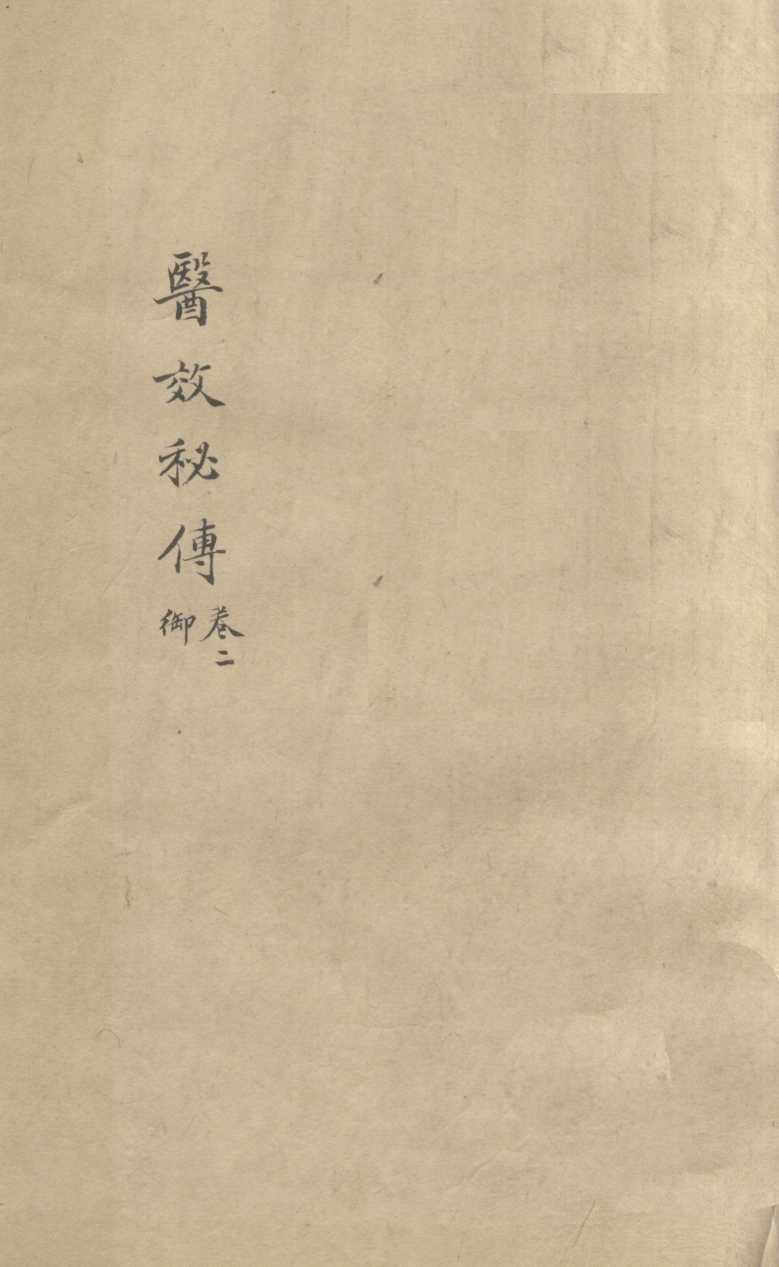 醫效秘傳
卷二
御